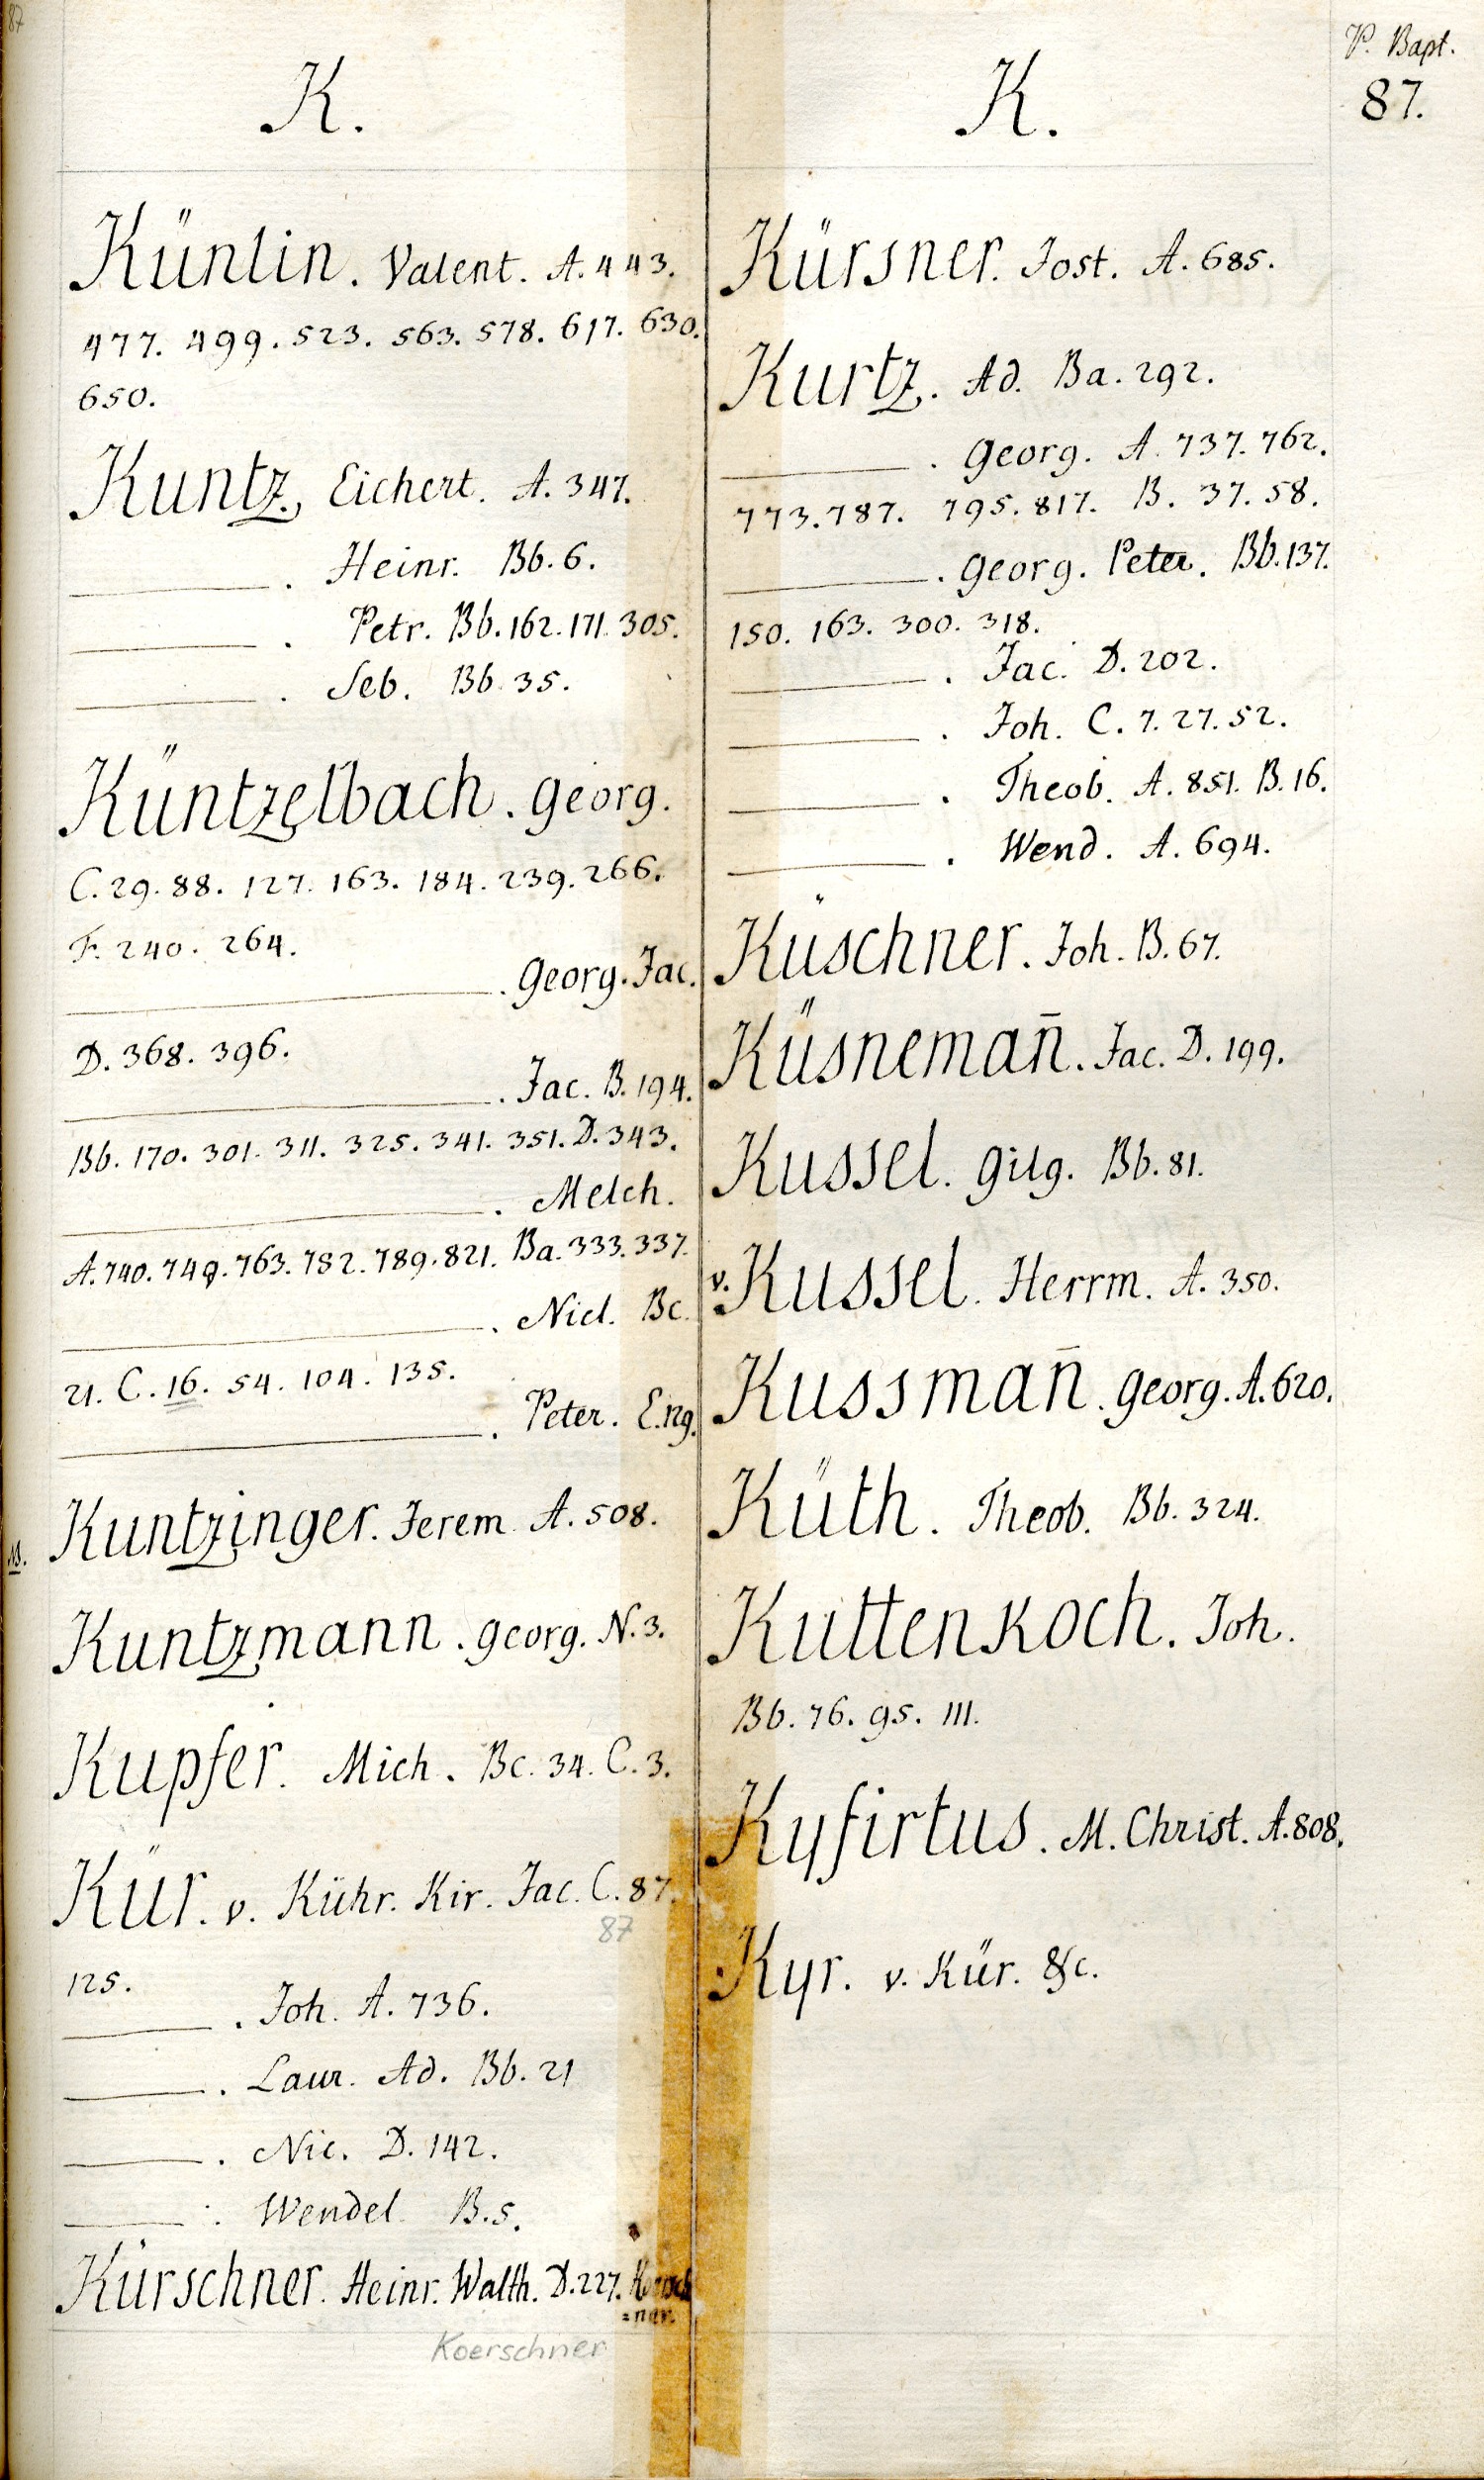 87
P. Bapt.
87.
K.
Künlin. Valent. A. 443.
477. 499. 523. 563. 578. 617. 630.
650.
Kuntz. Eichert. A. 347.
. Heinr. Bb. 6.
. Petr. Bb. 162. 171. 305.
. Seb. Bb. 35.
Küntzelbach. Georg.
C. 29. 88. 127. 163. 184. 239. 266.
F. 240. 264.
. Georg. Jac.
D. 368. 396.
. Jac. B. 194.
Bb. 170. 301. 311. 325. 341. 351. D. 343.
. Melch.
A. 740. 749. 763. 782. 789. 821. Ba. 333. 337.
. Nicl. Bc.
21. C. 16. 54. 104. 135.
. Peter. E. 129.
Kuntzinger. Jerem. A. 508.
Kuntzmann. Georg. N. 3.
Kupfer. Mich. Bc. 34. C. 3.
Kür. v. Kühr. Kir. Jac. C. 87.
87
125.
. Joh. A. 736.
. Laur. Ad. Bb. 21
. Nic. D. 142.
. Wendel. B. 5.
Kürschner. Heinr. Walth. D. 227.
=ner.
Koerschner
K.
Kürsner. Jost. A. 685.
Kurtz. Ad. Ba. 292.
. Georg. A. 737. 762.
773. 787. 795. 817. B. 37. 58.
. Georg. Peter. Bb. 137.
150. 163. 300. 318.
. Jac. D. 202.
. Joh. C. 7. 27. 52.
. Theob. A. 851. B. 16.
. Wend. A. 694.
Küschner. Joh. B. 67.
Küsneman̄. Jac. D. 199.
Kussel. Gilg. Bb. 81.
v. Kussel. Herrm. A. 350.
Kussman̄. Georg. A. 620.
Küth. Theob. Bb. 324.
Kuttenkoch. Joh.
Bb. 76. 95. 111.
Kyfirtus. M. Christ. A. 808.
Kyr. v. Kür. &c.